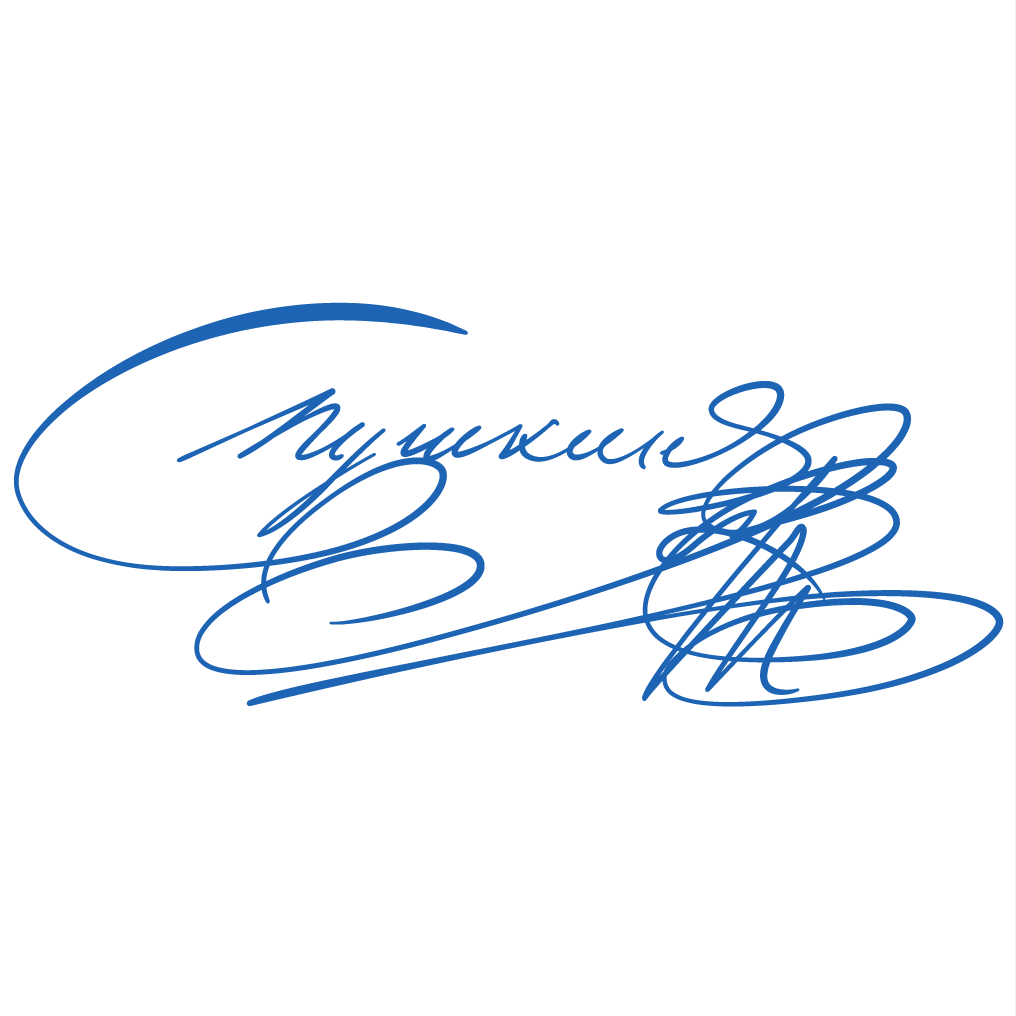 Пушкин